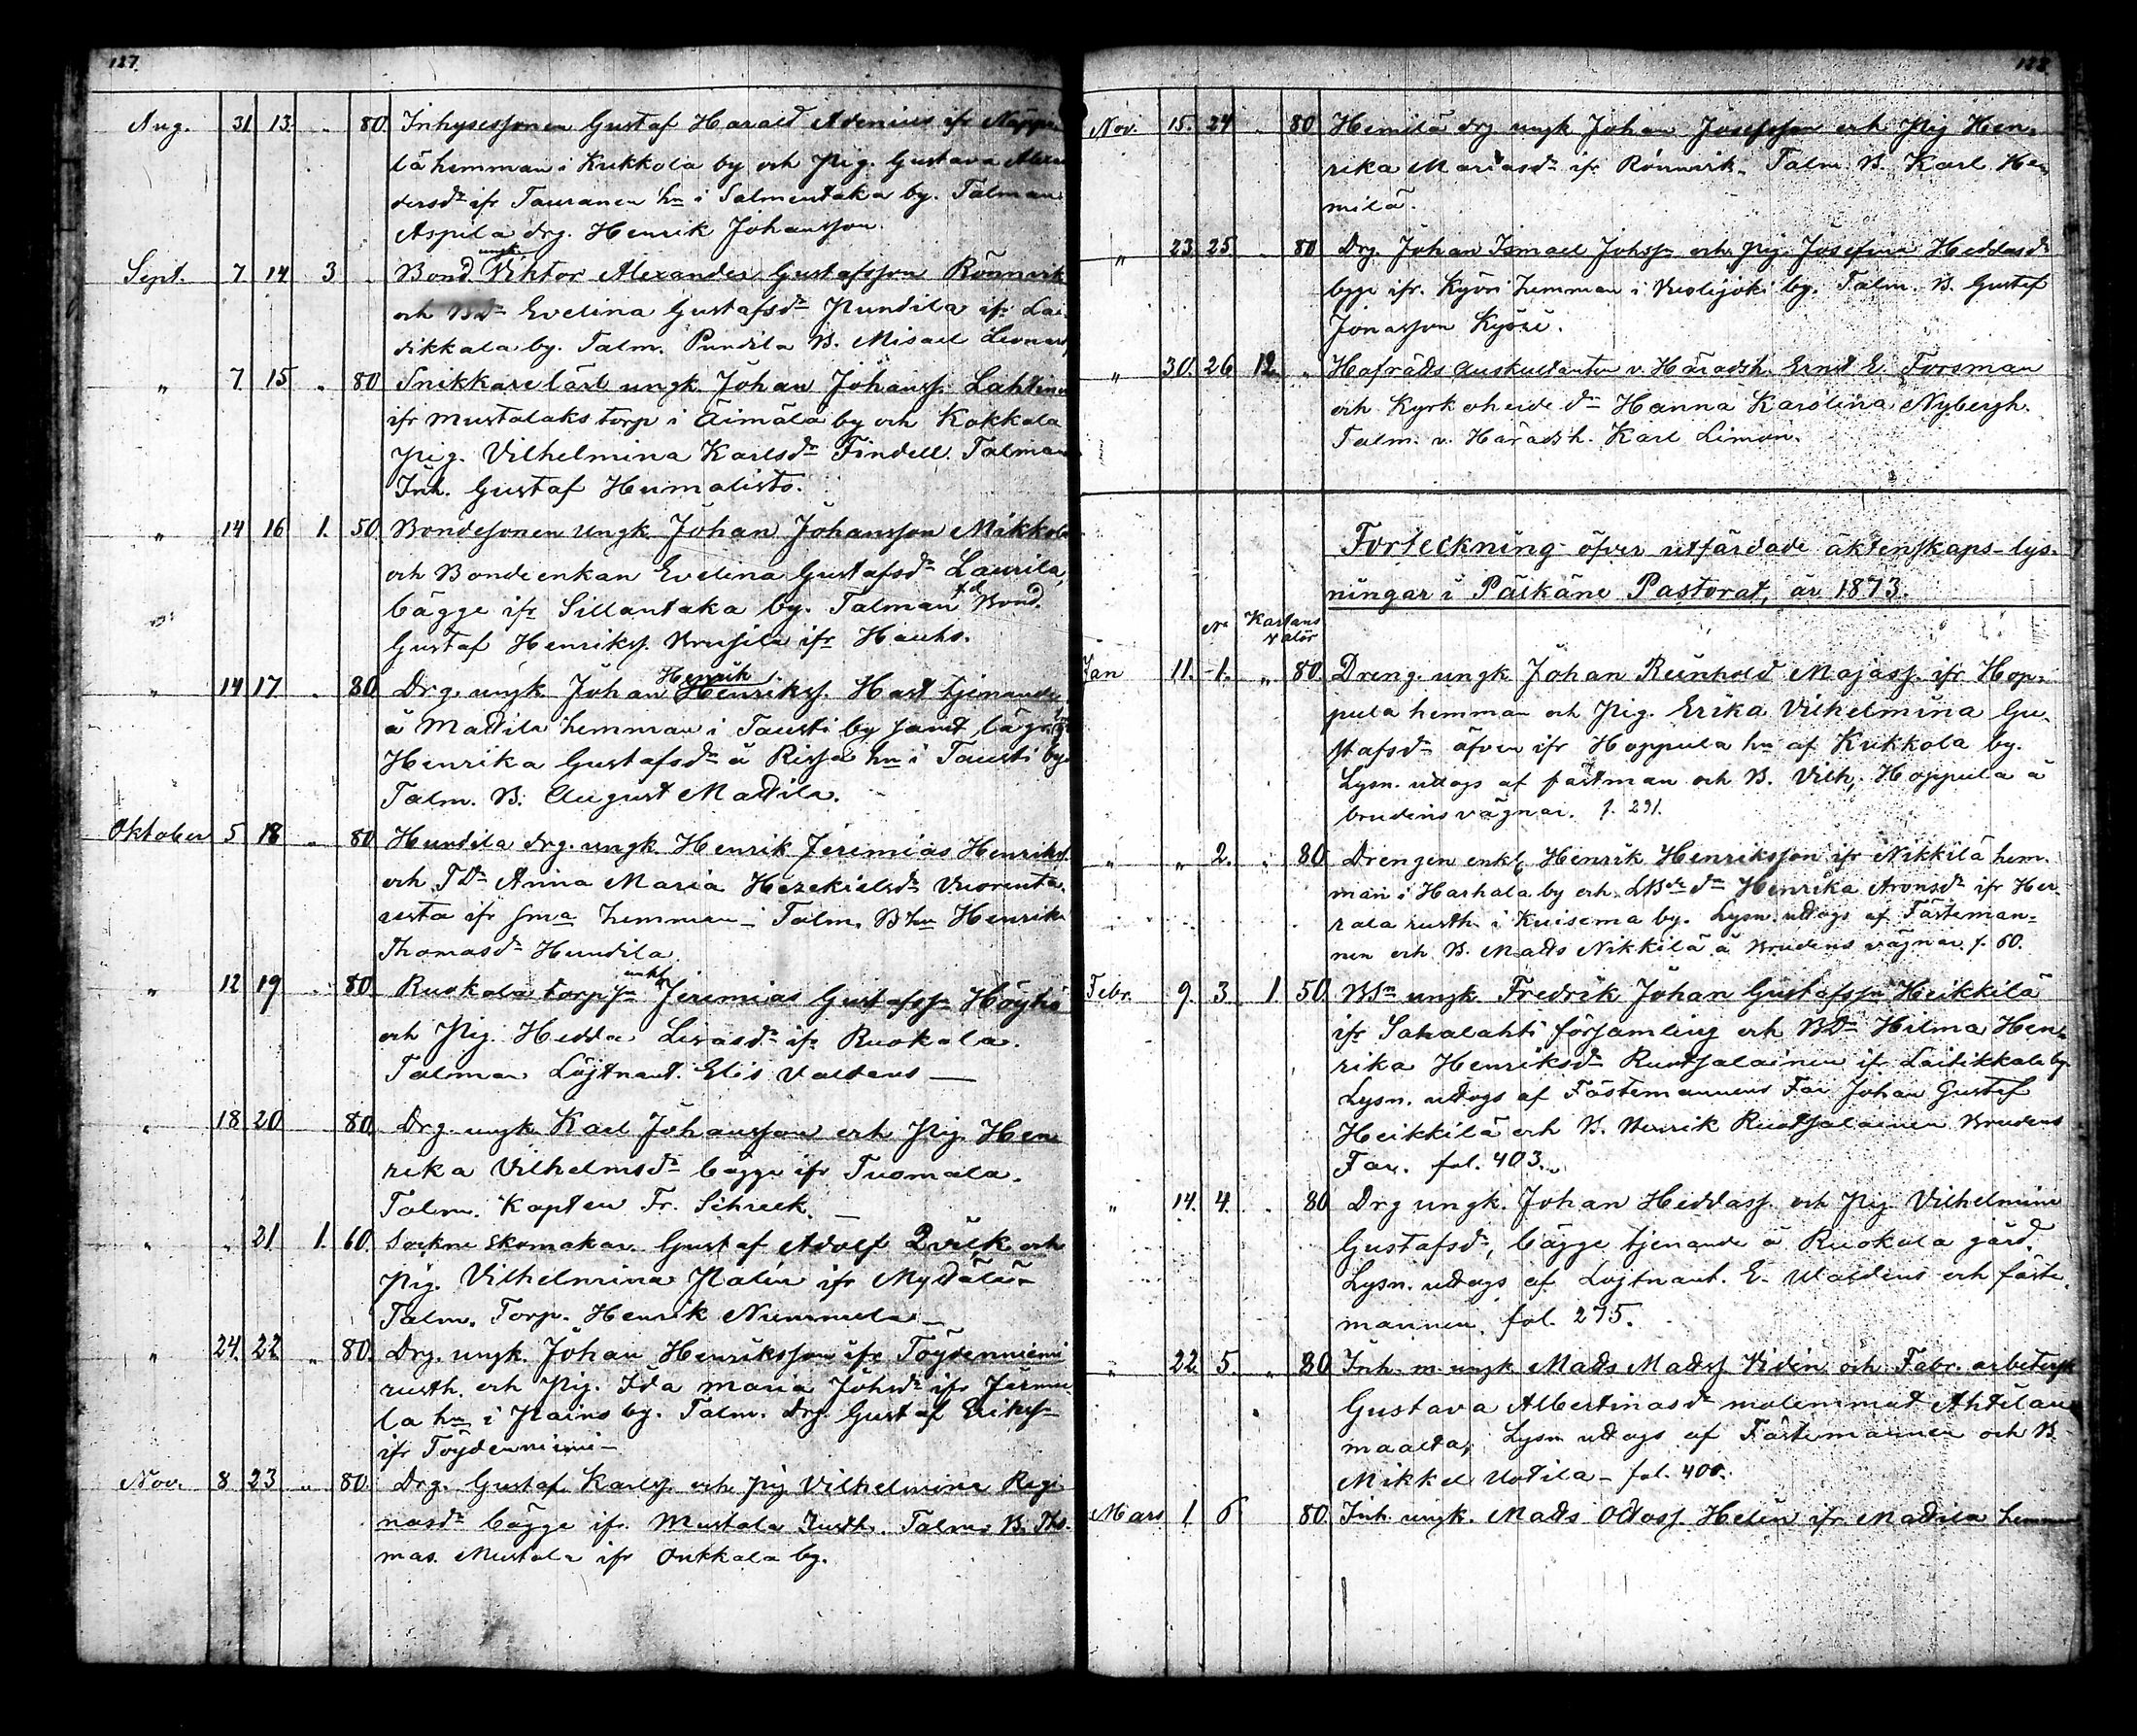 127.
Aug. 31 13. „ 80. Inhysessonen Gustaf Harald Avenius ifr Näppi-
lä hemman i Kukkola by och Pig. Gustava Alexan
dersdr ifr Tauranen hn i Salmentaka by. Talman
Aspila drg. Henrik Johansson.
Sept. 7. 14 3 . Bond. ungk. Viktor Alexander Gustafsson Rönnvik
och BDr Evelina Gustafsdr Pundila ifr Lai-
tikkala by. Talm. Pundila B. Misael Leonard
„ 7. 15 „ 80 Snikkarelärl ungk. Johan Johanss. Lahtinen
ifr Mustalaks torp i Äimälä by och Kokkola
pig. Vilhelmina Karlsdr Findell. Talman
Inh. Gustaf Humalisto.
„ 14 16 1. 50 Bondesonen ungk. Johan Johansson Mikkola
och Bondeenkan Evelina Gustafsdr Laurila,
bägge ifr Sillantaka by. Talman fd Bond.
Gustaf Henrikss. Brusila ifr Hauho.
„ 14 17 . 80 Drg. ungk Johan Henrik Henrikss. Hart tjenande
å Mattila hemman i Tausti by samt
Henrika Gustafsdr å Rissa hn i Tausti by
Talm. B. August Mattila.
Oktober 5 18 „ 80 Hundila drg. ungk. Henrik Jeremias Henrikss.
och TDr Anna Maria Hezekielsdr Vuorenta-
usta ifr sma hemman – Talm. Bhn Henrika
Thomasdr Hundila.
„ 12 19 . 80. Ruokola torpsn enkl Jeremias Gustafssn Höyhö
och Pig. Hedda Lisasdr ifr Ruokola.
Talman Löjtnant. Elis Valdens —
„ 18 20 80. Drg. ungk. Karl Johansson och Pig. Hen
rika Vilhelmsdr bägge ifr Tuomala.
Talm. Kapten Fr. Schreck. —
„ „ 21 1. 60. Sockne skomakar. Gustaf Adolf Qvick och
Pig. Vilhelmina Palin ifr
Talm. Torp. Henrik Nummela –
„ 24. 22 „ 80. Drg. ungk. Johan Henriksson ifr Töydenniemi
rusth. och Pig. Ida Maria Johsdr ifr Jermi
la hn i Pains by. Talm. drg. Gustaf Erikss
ifr Töydenniemi –
Nov. 8 23 „ 80. Drg. Gustaf Karlss. och Pig Vilhelmina Regi
nasdr bägge ifr. Mustala Rusth. Talm. B. Tho-
mas Mustala ifr Onkkala by.
128.
Nov. 15. 24 . 80 Hemilä drg ungk Johan Josefsson och Pig Hen-
rika Mariasdr ifr Rönnvik. Talm. B. Karl He-
milä.
„ 23. 25. . 80 Drg. Johan Ismael Johssn och Pig. Josefina Heddasdr
bgge ifr. Kyösi hemman i Vuolijoki by. Talm. B. Gustaf
Jonasson Kyösi.
„ 30. 26 12. „ Hofrätts Auskultanten v. Häradsh. Ernst E. Forsman
och Kyrkoherde dr Hanna Karolina Nybergh.
Talm. v. Häradsh. Karl Limon.
Forteckning öfver utfärdade äktenskaps-lys-
ningar i Pälkäne Pastorat, år 1873.
No Kartans
valör
Jan 11. 1. „ 80. Dreng. ungk Johan Reinhold Majass. ifr Hop-
pula hemman och Pig. Erika Vilhelmina Gu-
stafsdr äfven ifr Hoppula hn af Kukkola by.
Lysn. uttogs af fästman och B. Vilh. Hoppula å
brudens vägnar. f. 291.
„ „ 2. „ 80 Drengen enkl. Henrik Henriksson ifr Nikkilä hem-
man i Harhala by och dr Henrika Aronsdr ifr Her-
rala rusth. i Kuisema by. Lysn. uttogs af Fästeman-
nen och B. Matts Nikkilä å Brudens vägnar. f. 60.
Febr. 9. 3. 1 50. BSn ungk Fredrik Johan Gustafssn Heikkilä
ifr Sahalahti församling och BDr Hilma Hen-
rika Henriksdr Ruotsalainen ifr Laitikkala by.
Lysn. uttogs af Fästemannens Far Johan Gustaf
Heikkilä och B. Henrik Ruotsalainen Brudens
Far. fol. 403.
„ 14. 4. . 80 Drg ungk. Johan Heddass. och Pig Vilhelmina
Gustafsdr, bägge tjenande å Ruokola gård.
Lysn. uttogs af Lojtnant. E. Waldens och fäste-
mannen. fol. 275.
„ 22. 5. „ 80 Inh. m ungk Matts Mattss. Vidin och Fabr. arbetersk
Gustava Albertinasdr molemmat Ahtilan
maalta, Lysn uttogs af Fästemannen och B.
Mikkel Uotila – fol. 400.
Mars 1. 6 80. Inh. ungk. Matts Ottoss. Helin ifr. Mattila hemman